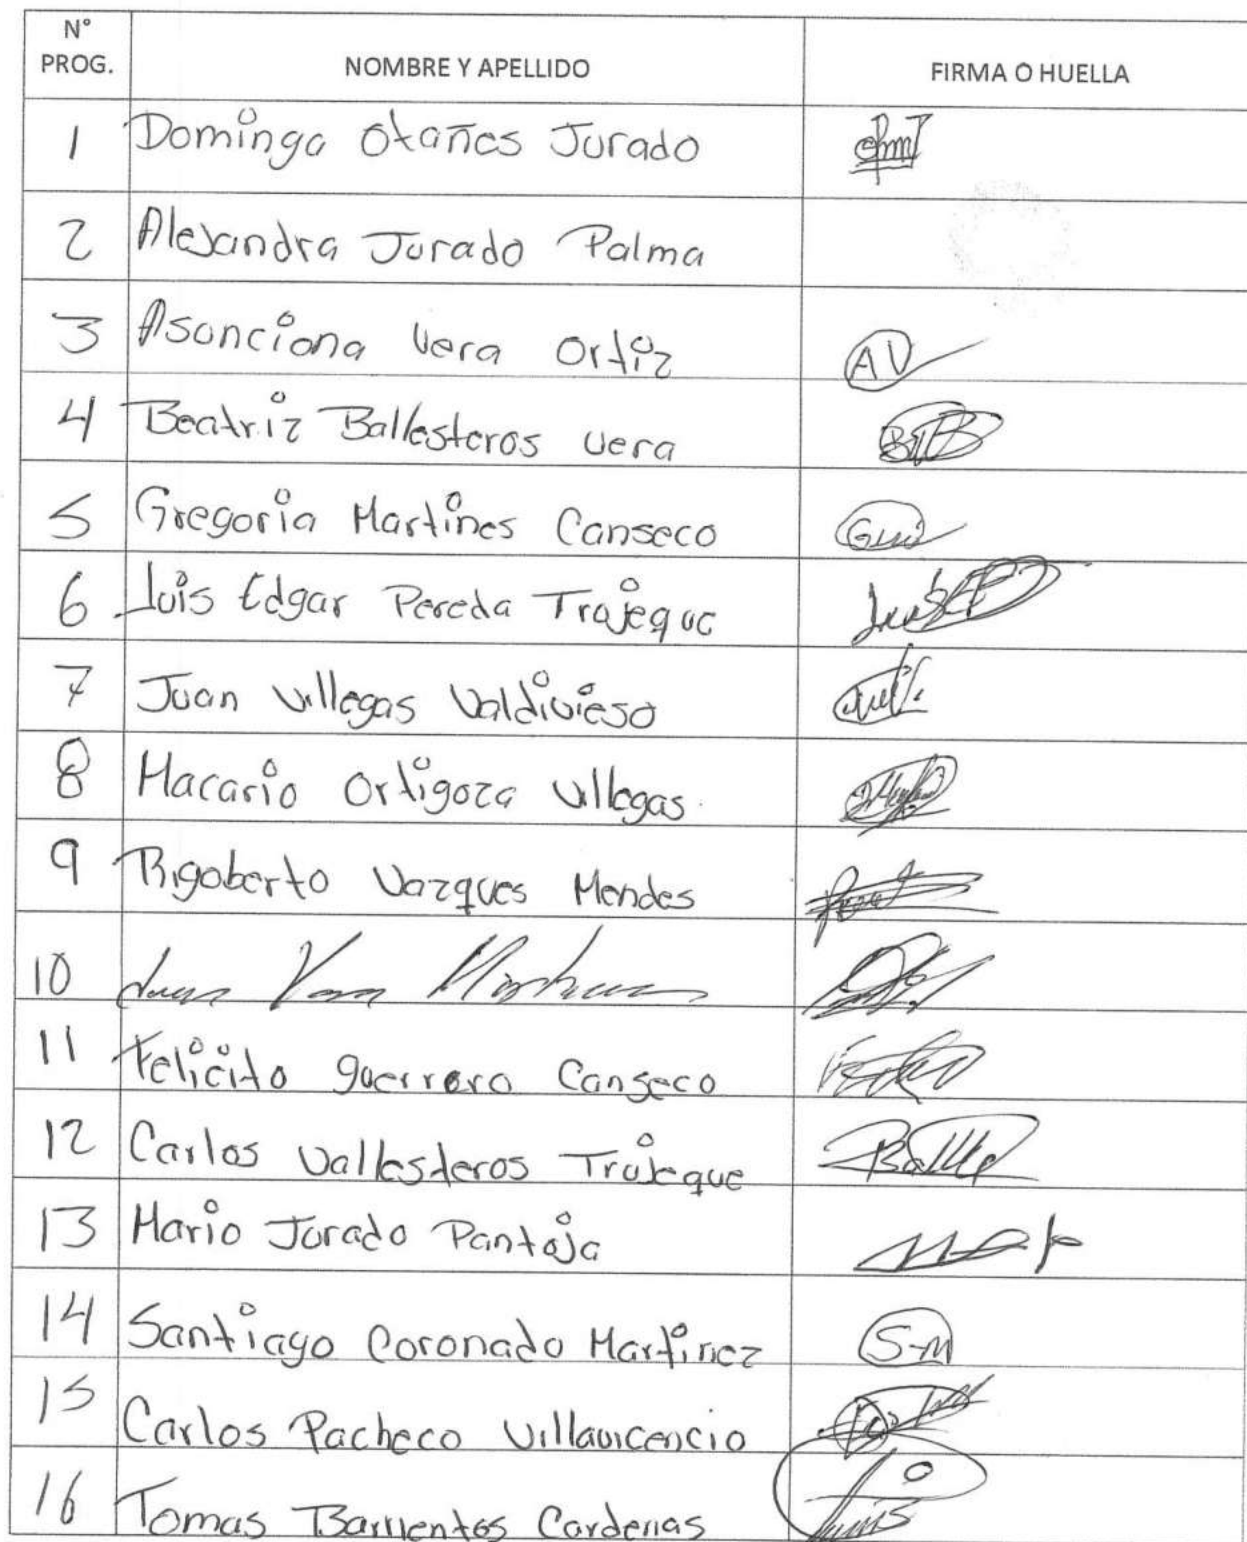 N° PROG. NOMBRE Y APELLIDO FIRMA O HUELLA
1 Dominga Otañes Jurado
2 Alejandra Jurado Palma
3 Asonciona Vera Ortiz AV
4 Beatriz Ballesteros Vera
5 Gregoria Martines Canseco
6 Luis Edgar Pereda Trujeque
7 Juan Villegas Valdivieso
8 Macario Ortigoza Villegas
9 Rigoberto Vazques Mendes
10
11 Felicito guerrero Canseco
12 Carlos Vallesteros Trujeque
13 Mario Jurado Pantoja
14 Santiago Coronado Martinez S-M
15 Carlos Pacheco Villavicencio
16 Tomas Barrientos Cardenas